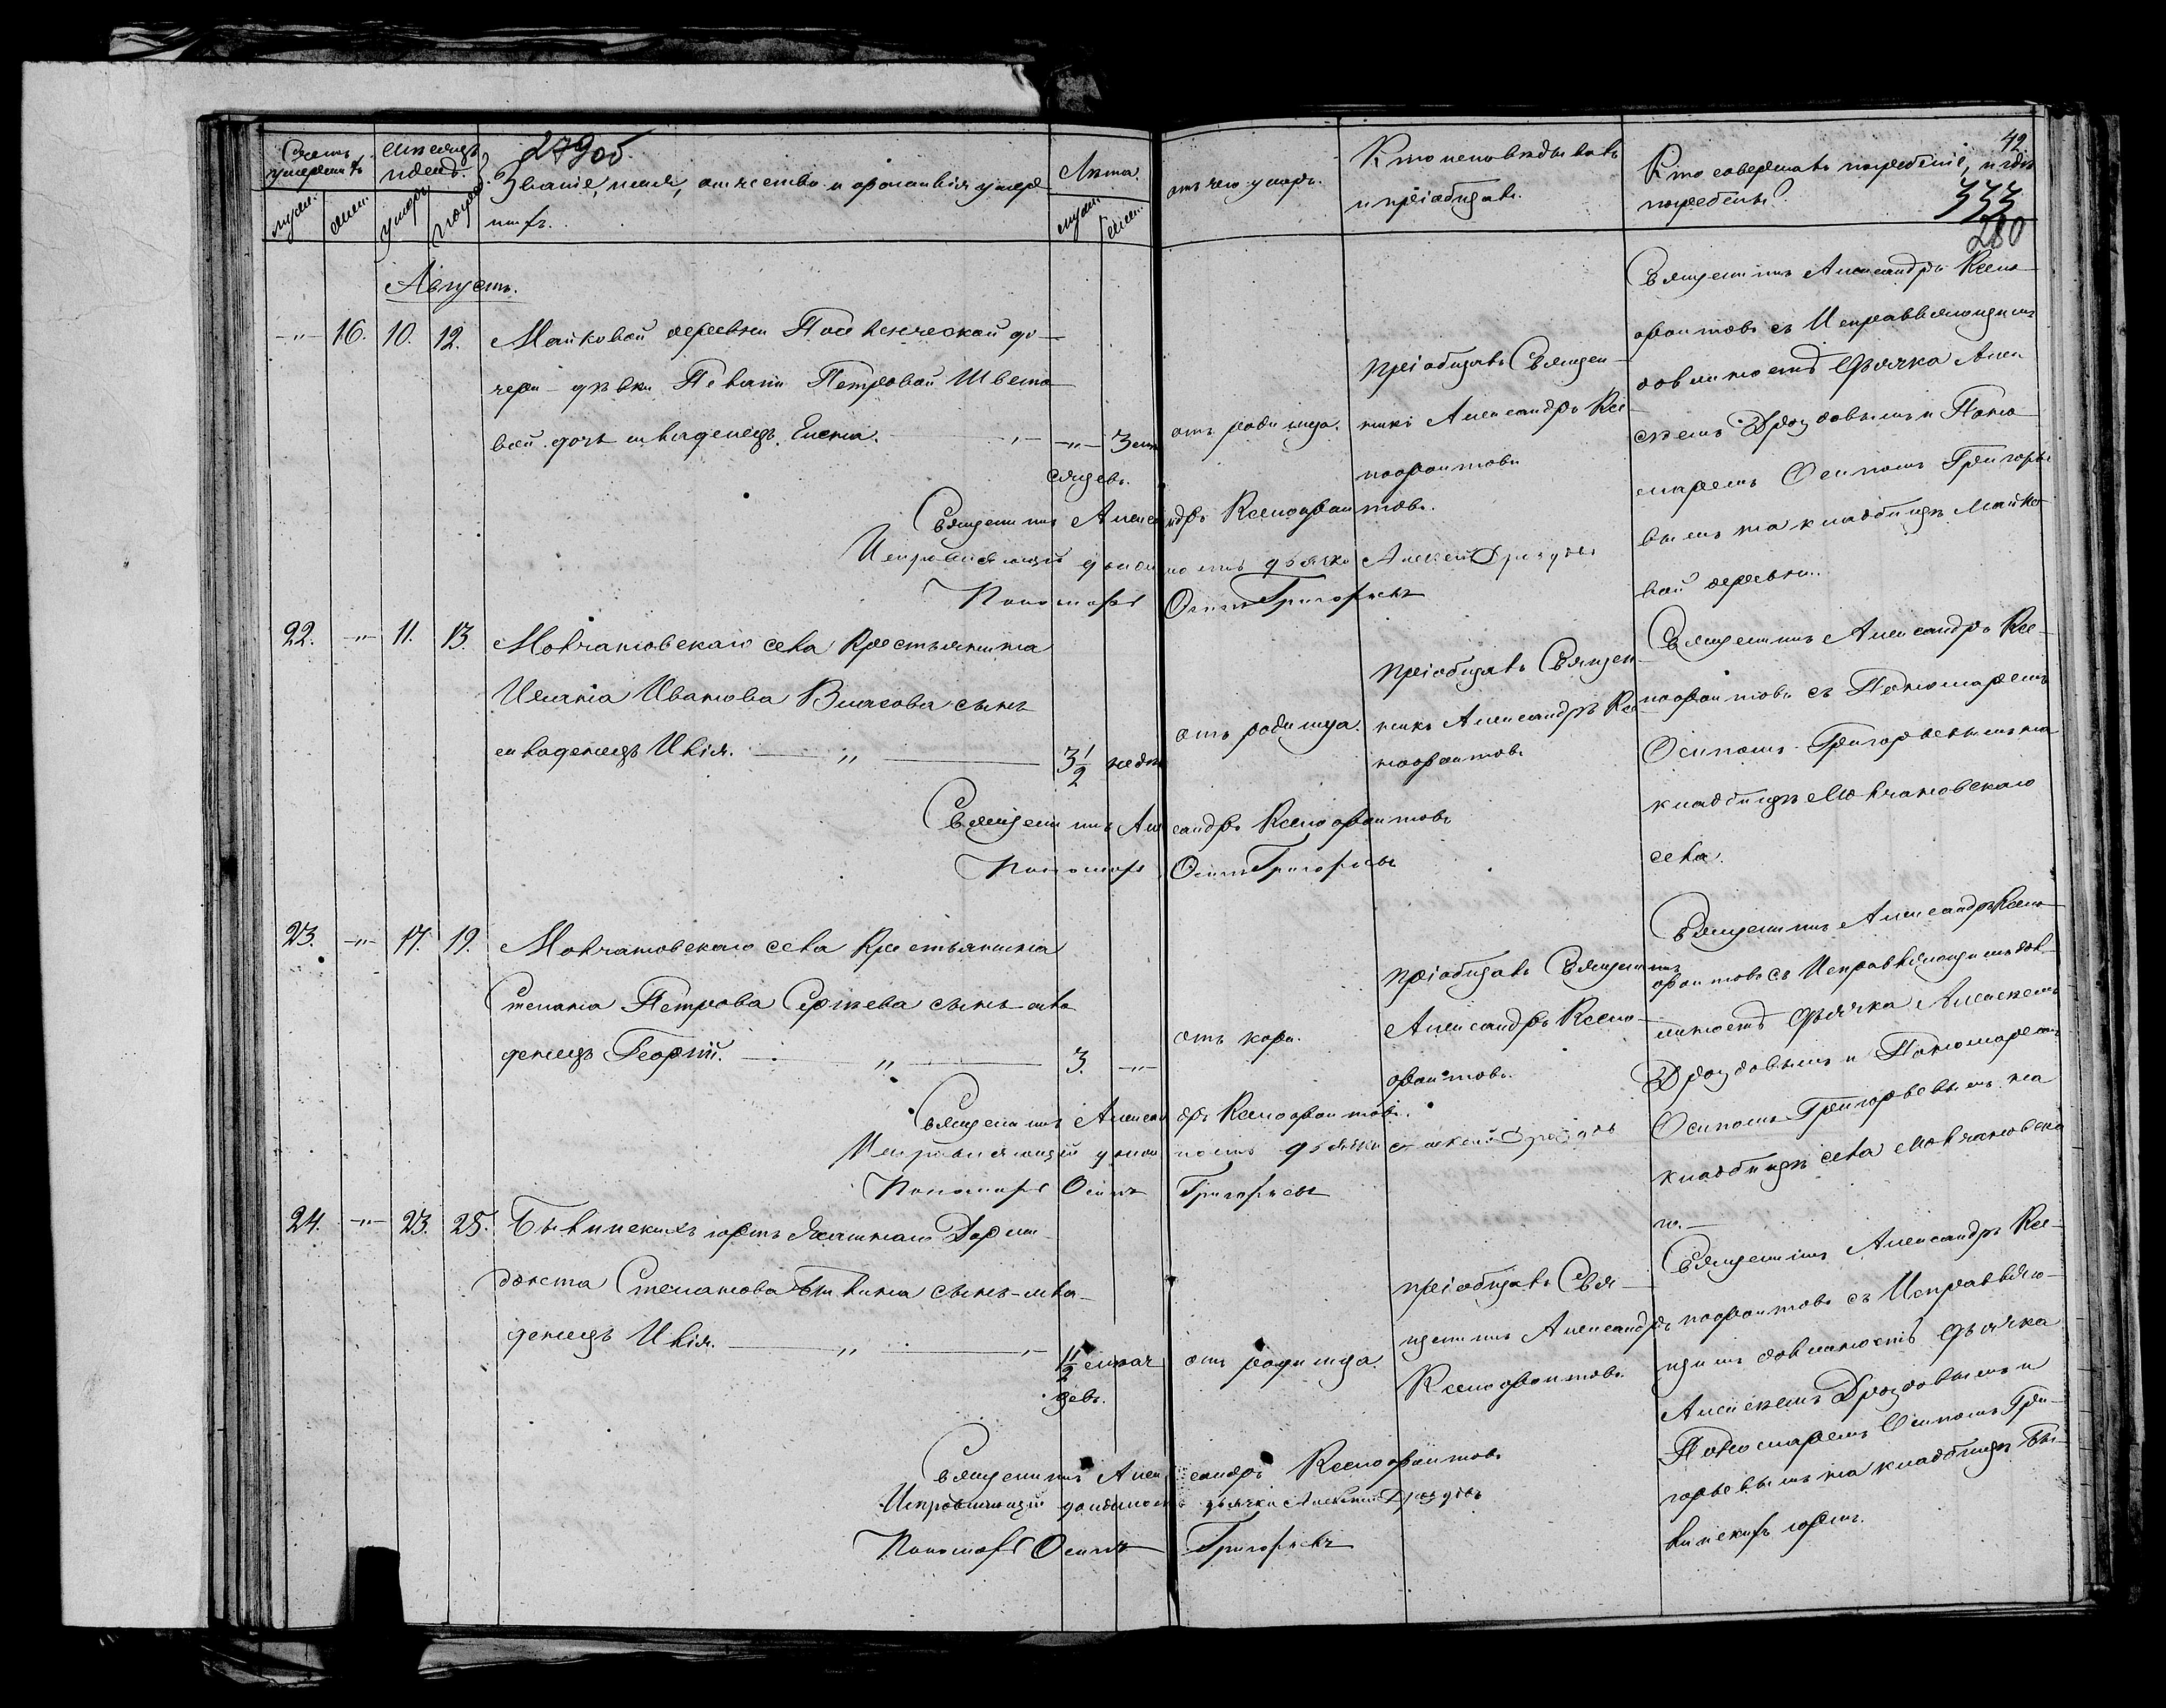 Счетъ умершихъ
муж.
жен.
мѣсяцъ и день.
умеръ
погреб.
279 об
Званіе, имя, отчество и фамилія умер
шихъ.
Лѣта.
муж.
жен.
отъ чего умеръ.
Кто исповѣдывалъ
и пріобщалъ.
Кто совершалъ погребеніе, и гдѣ
погребены?
42
333
280
Августъ.
-"- 16. 10. 12.
Майковой деревни Поселенческой до-
чери - дѣвки Пелагіи Петровой Швецо-
вой дочь младенецъ Елена. -"- 3 мѣ
сяцевъ.
отъ родимца.
пріобщалъ Священ-
никъ Александръ Ксе-
нофонтовъ
Священникъ Александръ Ксено-
фонтовъ съ Исправляющимъ
должность Дьячка Алек-
сѣемъ Дроздовымъ и Поно-
маремъ Осипомъ Григорье-
вымъ на кладбищѣ Майко-
вой деревни.
Священникъ Александръ Ксенофонтовъ.
Исправляющій должность дьячка Алексѣй Дроздовъ
Пономарь Осипъ Григорьевъ
22. -"- 11. 13.
Молчановскаго села Крестьянина
Ивана Иванова Власова сынъ
младенецъ Илія. " 3½ недѣ
отъ родимца.
пріобщалъ Священ-
никъ Александръ Ксе-
нофонтовъ
Священникъ Александръ Ксе-
нофонтовъ съ Пономаремъ
Осипомъ Григорьевымъ на
кладбищѣ Молчановскаго
села.
Священникъ Александръ Ксенофонтовъ
Пономарь Осипъ Григорьевъ
23. -"- 17. 19.
Молчановскаго села Крестьянина
Степана Петрова Сергѣева сынъ мла
денецъ Георгій. " 3. -"-
отъ кори.
пріобщалъ Священникъ
Александръ Ксено-
фонтовъ.
Священникъ Александръ Ксено-
фонтовъ съ Исправляющимъ дол-
жность Дьячка Алексѣемъ
Дроздовымъ и Пономаремъ
Осипомъ Григорьевымъ на
кладбищѣ села Молчановска
го.
Священникъ Александръ Ксенофонтовъ.
Исправляющій должность дьячка Алексѣй Дроздовъ
Пономарь Осипъ Григорьевъ
24. -"- 23. 25.
Былинскихъ юртъ Ясашнаго Дорми-
донта Степанова Былина сынъ-мла-
денецъ Илія. " 1½ мѣся
цевъ.
отъ родимца.
пріобщалъ Свя-
щенникъ Александръ
Ксенофонтовъ.
Священникъ Александръ Ксе-
нофонтовъ съ Исправляю-
щимъ должность Дьячка
Алексѣемъ Дроздовымъ и
Пономаремъ Осипомъ Гри-
горьевымъ на кладбищѣ Бы-
линскихъ юртъ.
Священникъ Александръ Ксенофонтовъ
Исправляющій должность дьячка Алексѣй Дроздовъ
Пономарь Осипъ Григорьевъ